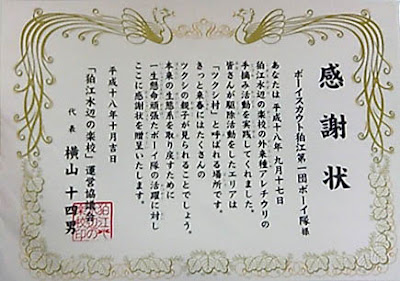 感謝状
ボーイスカウト狛江第二団ボーイ隊様
あなたは平成十八年九月十七日
狛江水辺の楽校の外来種アレチウリの
手摘み活動を実践してくれました。
皆さんが駆除活動をしたエリアは
「ツクシ村」と呼ばれる場所です。
きっと来春にはたくさんの
ツクシの親子が見られることでしょう。
本来の生態系を取り戻すために
一生懸命頑張ったボーイ隊の活躍に対し
ここに感謝状を贈呈いたします。
平成十八年十月吉日
「狛江水辺の楽校」運営協議会
代表 横山十四男